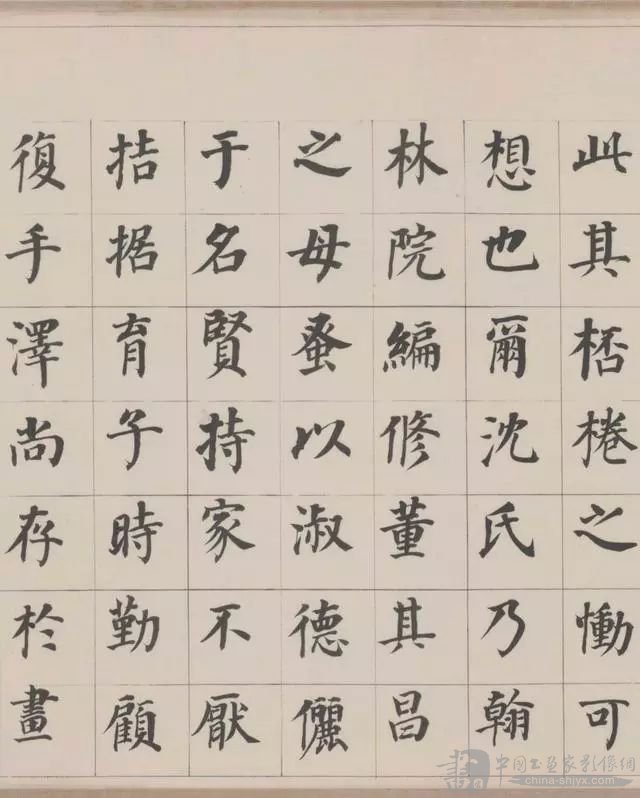 此其桮棬之慟可
想也爾沈氏乃翰
林院編修董其昌
之母蚤以淑德儷
于名賢持家不厭
拮据育子時勤顧
復手澤尚存於畫
中国书画家影像網
china-shjyx.com